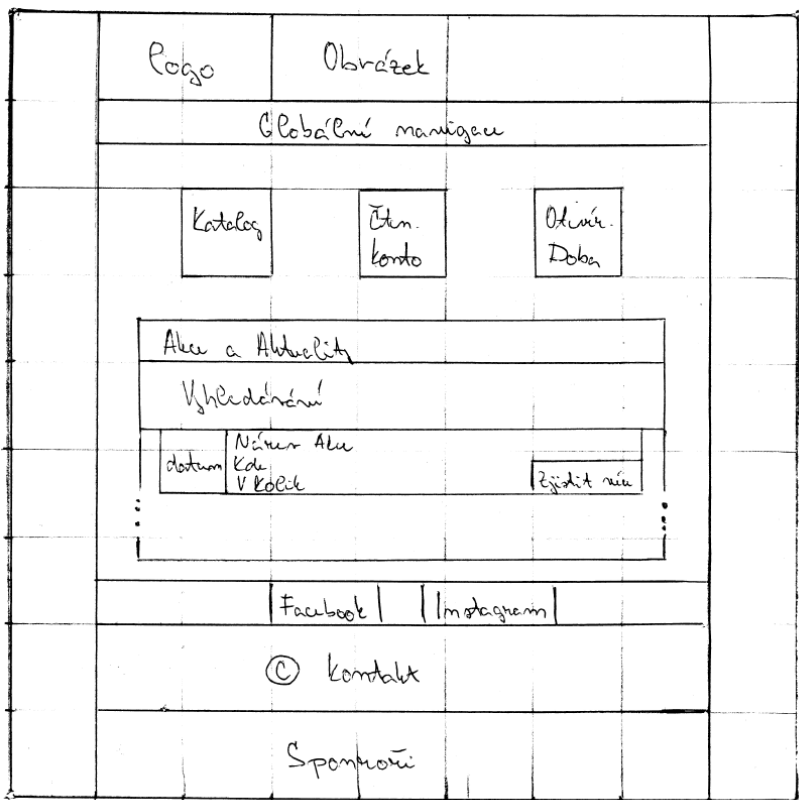 Logo
Obrázek
Globální navigace
Katalog
Čten.
konto
Otivír.
Doba
Akce a Aktuality
Vyhledávání
datum
Název Akce
Kde
V kolik
Zjistit více
Facebook
Instagram
© Kontakt
Sponzoři